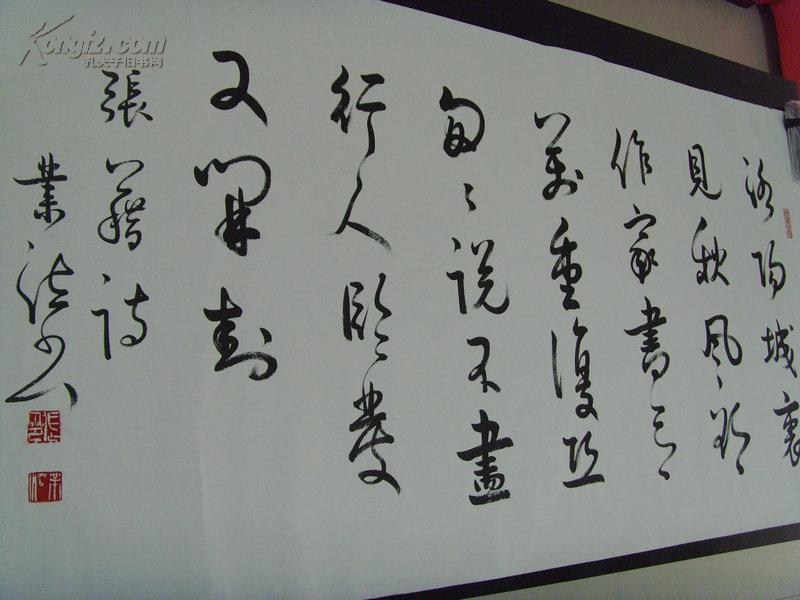 洛陽城裏
見秋風欲
作家書意
萬重復恐
匆々說不盡
行人臨發
又開封
張籍詩
業
Kongfz.com
孔夫子旧书网